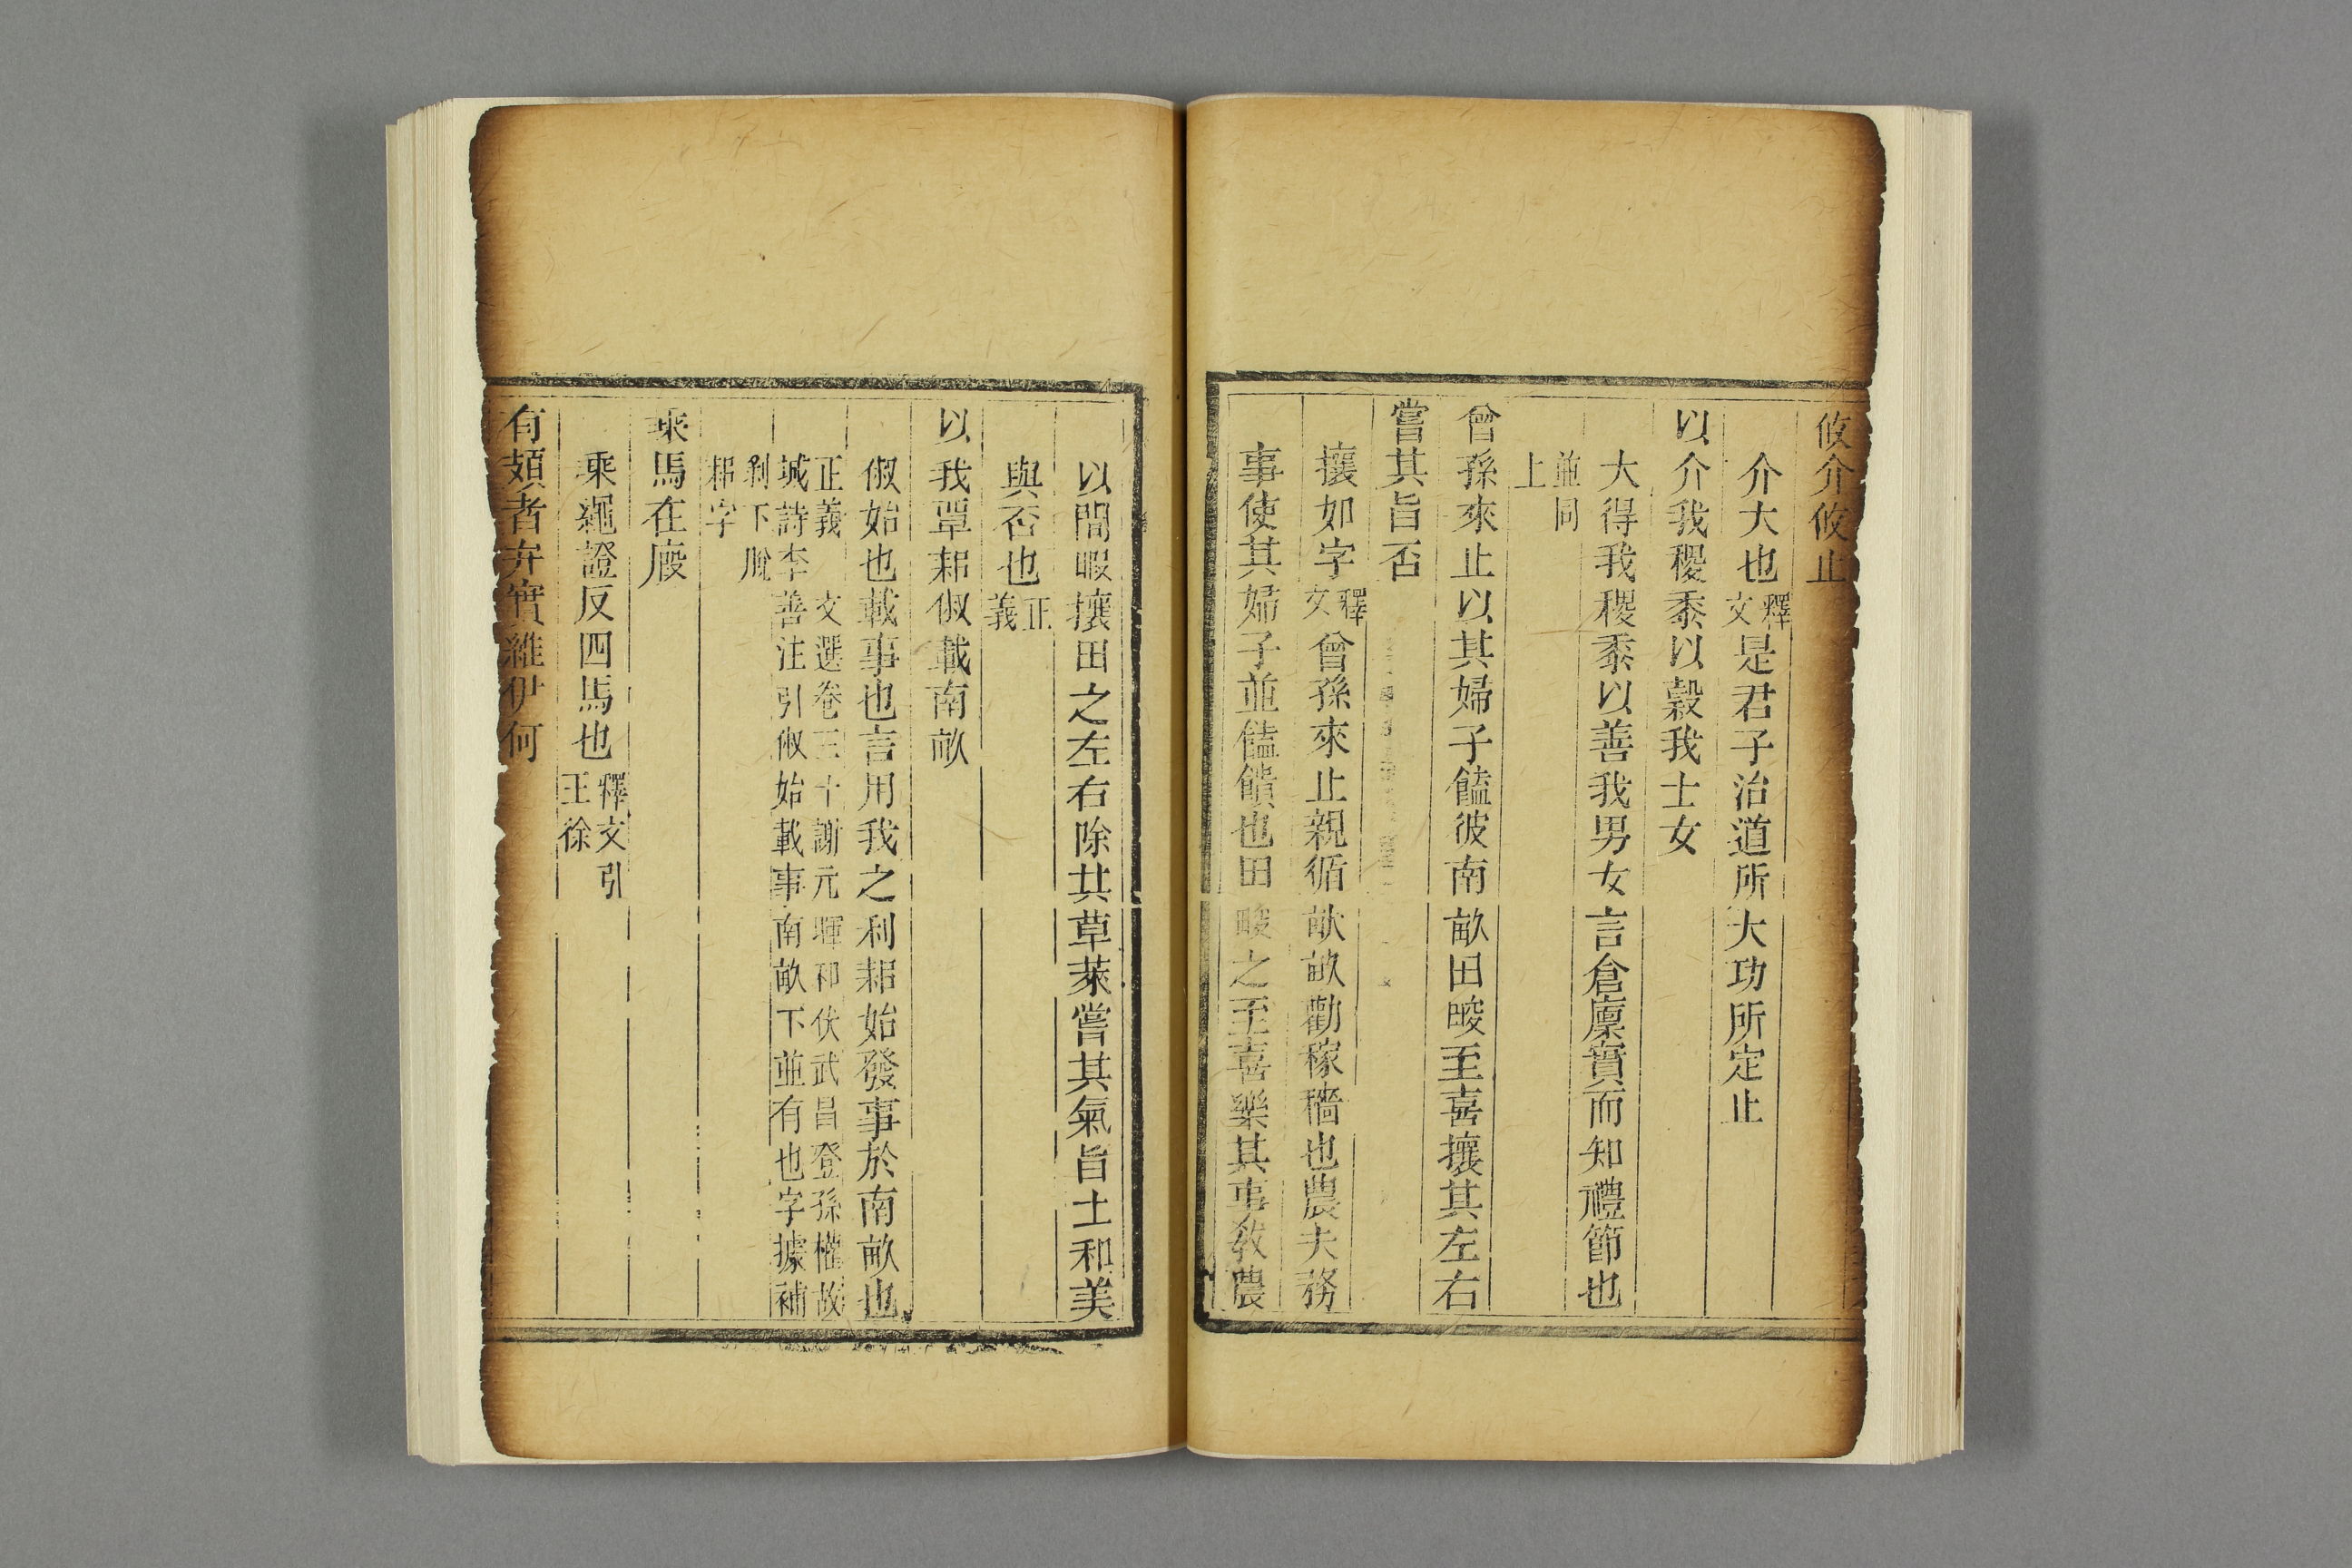 攸介攸止
介大也釋文是君子治道所大功所定止
以介我稷黍以穀我士女
大得我稷黍以善我男女言倉廩實而知禮節也
並同上
曾孫來止以其婦子饁彼南畝田畯至喜攘其左右
嘗其旨否
攘如字釋文曾孫來止親循畎畝勸稼穡也農夫務
事使其婦子並饁饋也田畯之至喜樂其事敎農
以閒暇攘田之左右除其草萊嘗其氣旨土和美
與否也正義
以我覃耜俶載南畝
俶始也載事也言用我之利耜始發事於南畝也
正義 文選卷三十謝元暉和伏武昌登孫權故
城詩李善注引俶始載事南畝下並有也字據補
剡下脫
耜字
乘馬在廄
乘繩證反四馬也釋文引王徐
有頍者弁實維伊何